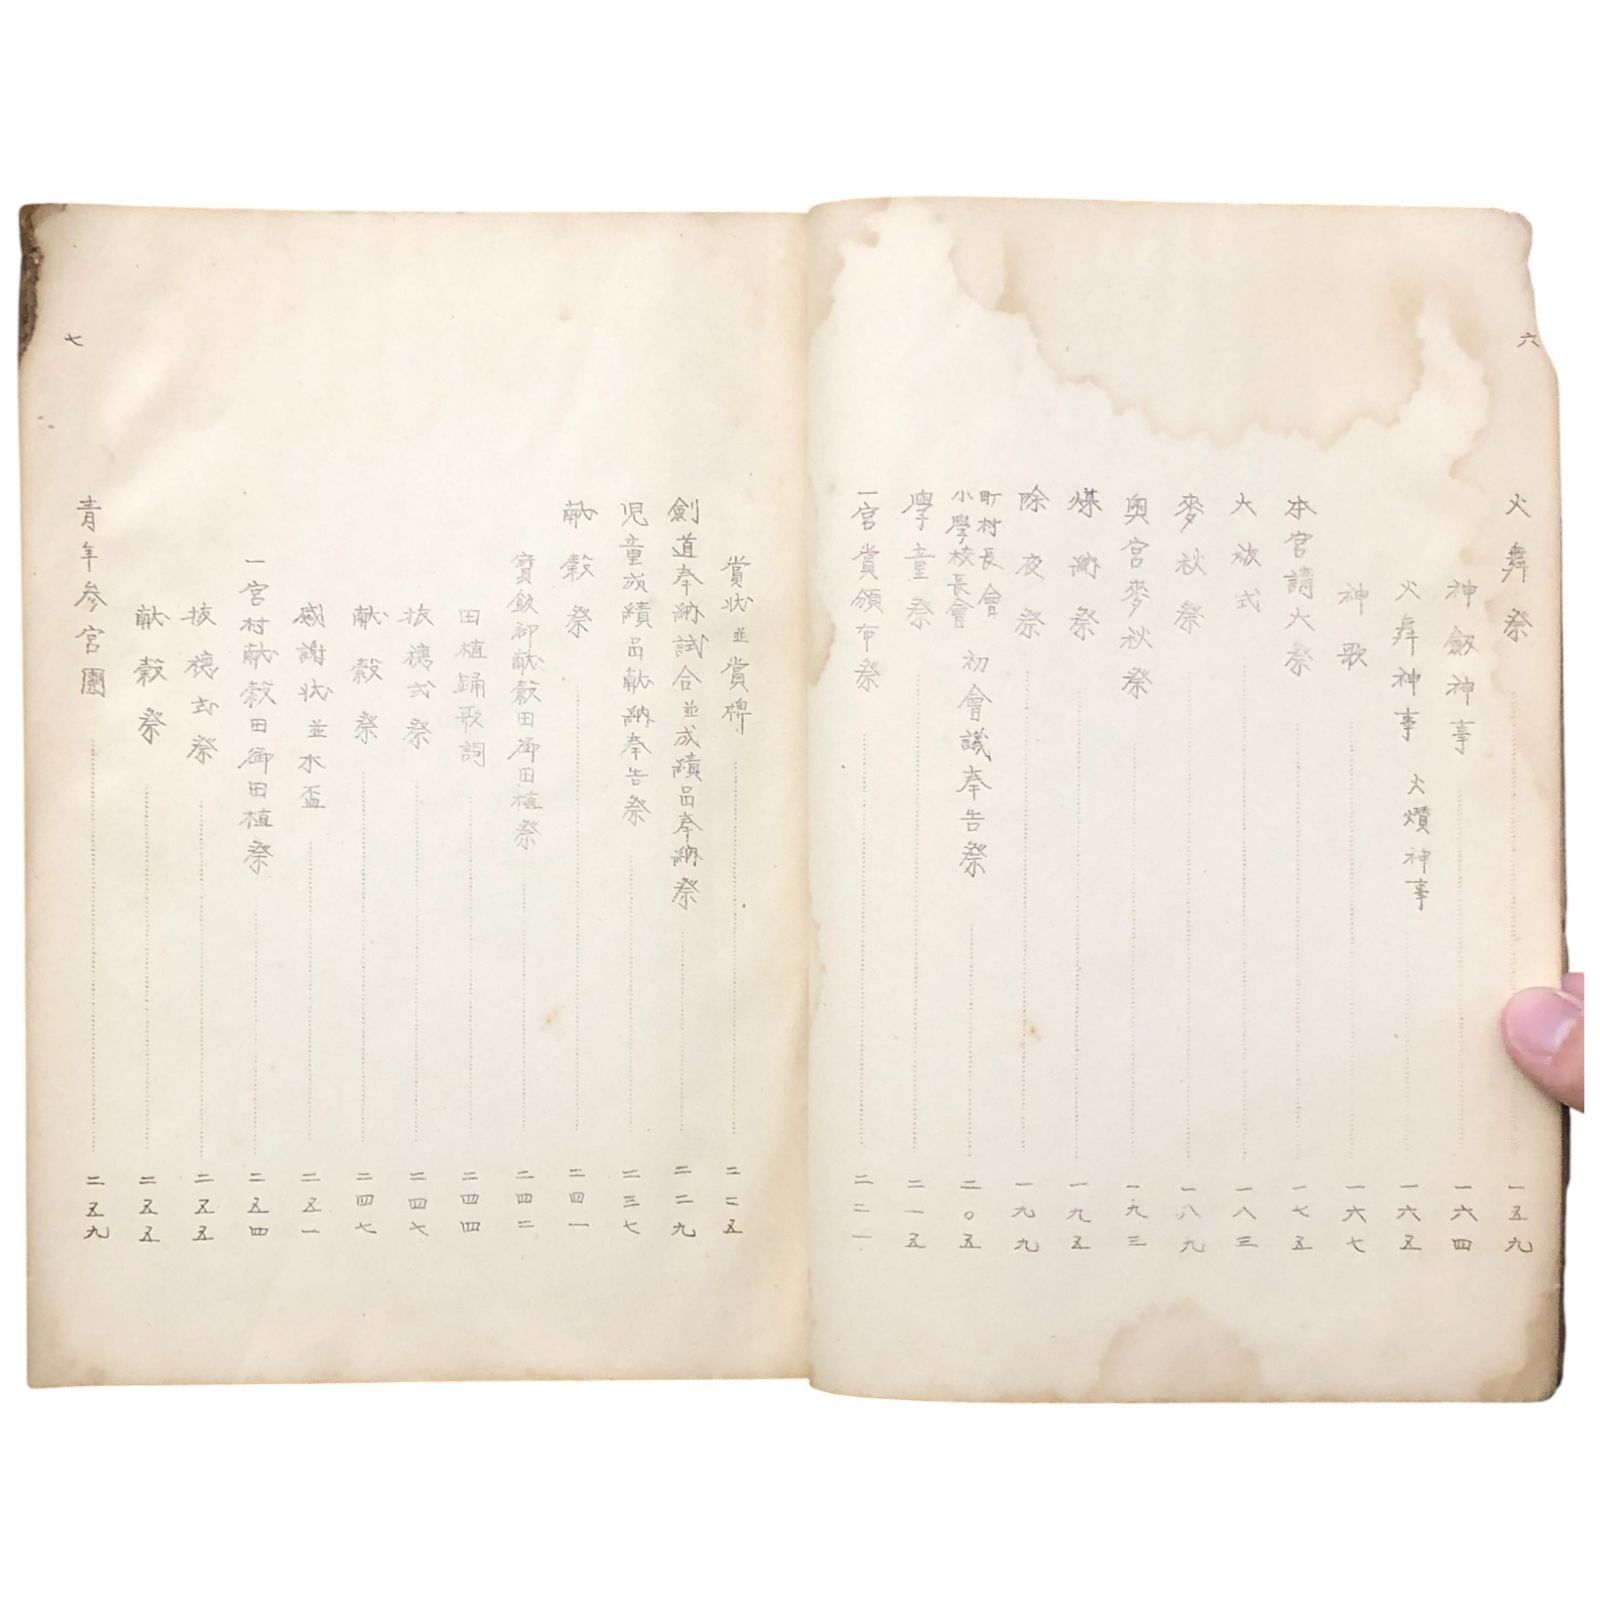 六
火舞祭 一五九
神劔神事 一六四
火舞神事 火鑽神事 一六五
神歌 一六七
本宮講大祭 一七五
大祓式 一八三
麥秋祭 一八九
奥宮麥秋祭 一九三
煤納祭 一九五
除夜祭 一九九
町村長會
小學校長會 初會議奉告祭 二〇五
學童祭 二一五
一宮賞頒布祭 二二一
賞状並賞牌 二二五
劍道奉納試合並成績品奉納祭 二二九
児童成績品献納奉告祭 二三七
献穀祭 二四一
寳飯郡献穀田御田植祭 二四二
田植踊歌詞 二四四
抜穂式祭 二四七
献穀祭 二四七
感謝状並木盃 二五一
一宮村献穀田御田植祭 二五四
抜穂式祭 二五五
献穀祭 二五五
青年参宮團 二五九
七